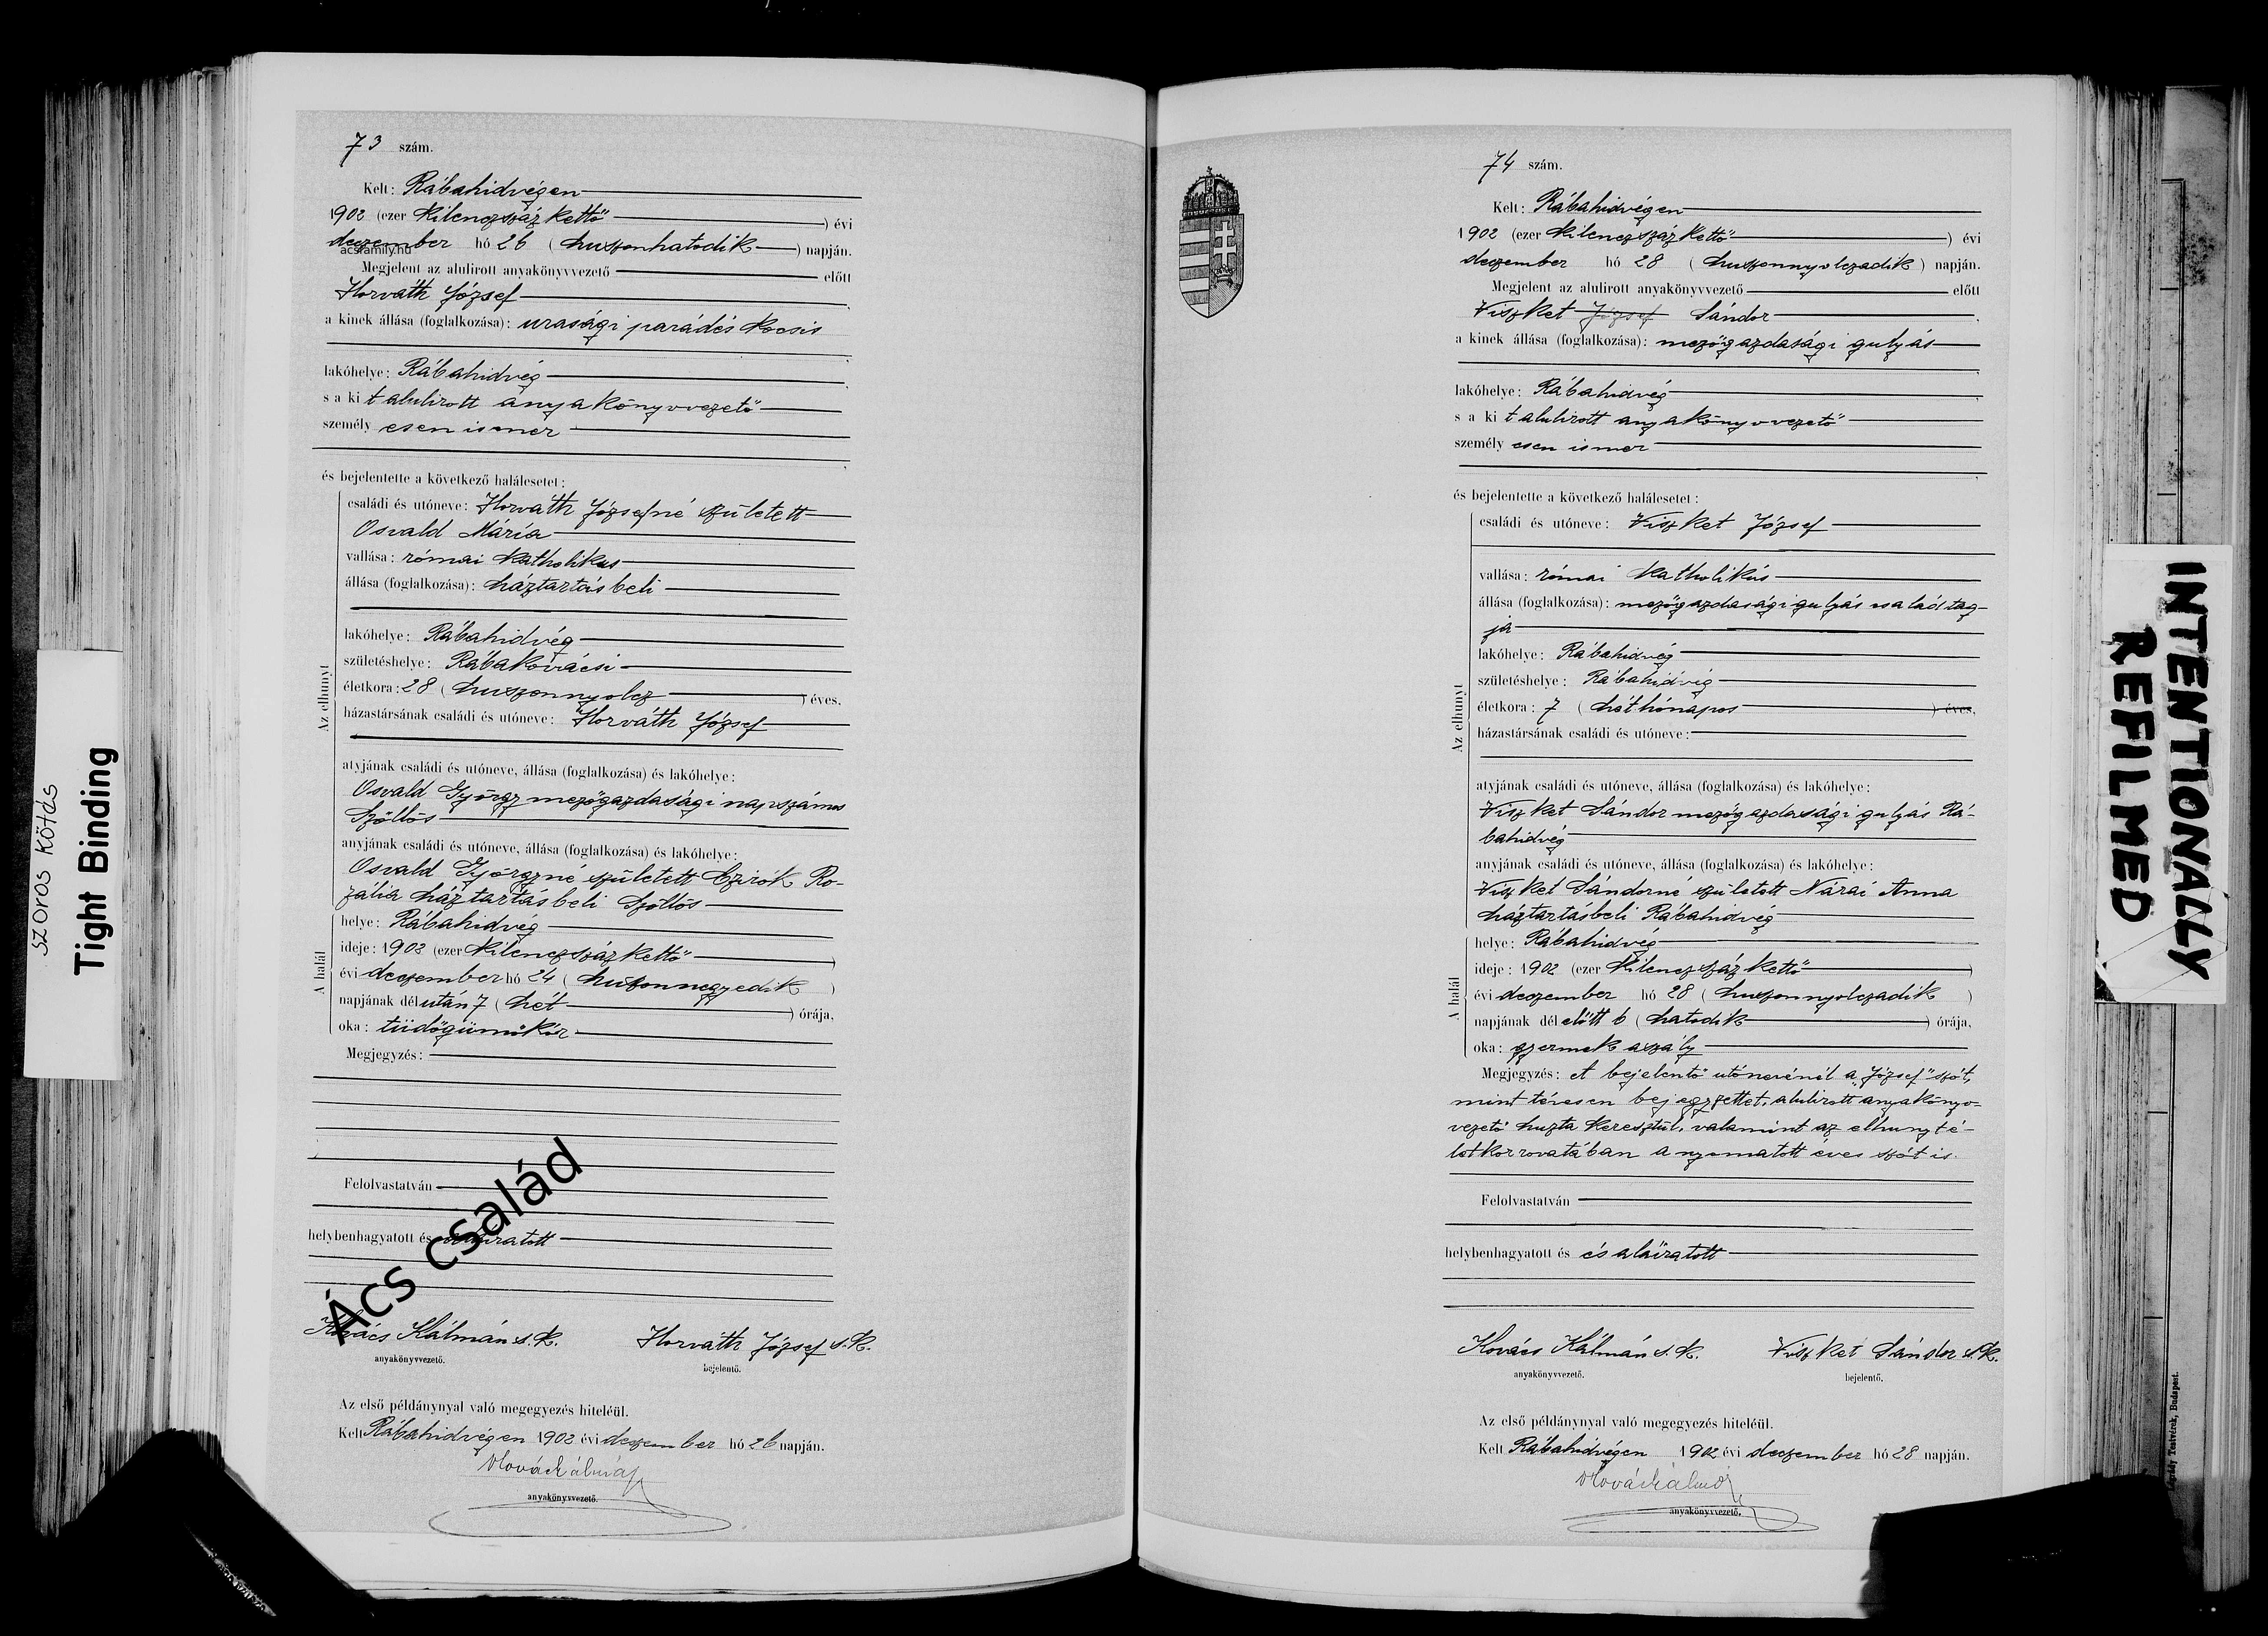 szoros kötés
Tight Binding
73 szám.
Kelt: Rábahidvégen
1902 (ezer kilenczszáz kettő ) évi
deczember hó 26 (huszonhatodik ) napján.
acsfamily.hu
Megjelent az alulirott anyakönyvvezető előtt
Horváth József
a kinek állása (foglalkozása): urasági parádés kocsis
lakóhelye: Rábahidvég
s a kit alulirott anyakönyvvezető
személyesen ismer
és bejelentette a következő halálesetet:
Az elhunyt
családi és utóneve: Horváth Józsefné született
Osvald Mária
vallása: római katholikus
állása (foglalkozása): háztartásbeli
lakóhelye: Rábahidvég
születéshelye: Rábakovácsi
életkora: 28 (huszonnyolcz ) éves,
házastársának családi és utóneve: Horváth József
atyjának családi és utóneve, állása (foglalkozása) és lakóhelye:
Osvald György mezőgazdasági napszámos
Szöllős
anyjának családi és utóneve, állása (foglalkozása) és lakóhelye:
Osvald Györgyné született Czirók Ro-
zália háztartásbeli Szöllős
A halál
helye: Rábahidvég
ideje: 1902 (ezer kilenczszáz kettő )
évi deczember hó 24 (huszonnegyedik )
napjának délután 7 (hét ) órája,
oka: tüdőgümőkór
Megjegyzés:
Felolvastatván
helybenhagyatott és aláiratott
Ács család
Kovács Kálmán s. k. Horváth József s. k.
anyakönyvvezető. bejelentő.
Az első példánynyal való megegyezés hiteléül.
Kelt Rábahidvégen 1902 évi deczember hó 26 napján.
Kovács Kálmán
anyakönyvvezető.
74 szám.
Kelt: Rábahidvégen
1902 (ezer kilenczszáz kettő ) évi
deczember hó 28 (huszonnyolczadik ) napján.
Megjelent az alulirott anyakönyvvezető előtt
Viszket József Sándor
a kinek állása (foglalkozása): mezőgazdasági gulyás
lakóhelye: Rábahidvég
s a kit alulirott anyakönyvvezető
személyesen ismer
és bejelentette a következő halálesetet:
Az elhunyt
családi és utóneve: Viszket József
vallása: római katholikus
állása (foglalkozása): mezőgazdasági gulyás családtag-
ja
lakóhelye: Rábahidvég
születéshelye: Rábahidvég
életkora: 7 (hét hónapos ) éves,
házastársának családi és utóneve:
atyjának családi és utóneve, állása (foglalkozása) és lakóhelye:
Viszket Sándor mezőgazdasági gulyás Rá-
bahidvég
anyjának családi és utóneve, állása (foglalkozása) és lakóhelye:
Viszket Sándorné született Nárai Anna
háztartásbeli Rábahidvég
A halál
helye: Rábahidvég
ideje: 1902 (ezer kilenczszáz kettő )
évi deczember hó 28 (huszonnyolczadik )
napjának délelőtt 6 (hatodik ) órája,
oka: gyermek aszály
Megjegyzés: A bejelentő utónevénél a „József" szót,
mint tévesen bejegyzettet, alulirott anyakönyv-
vezető huzta keresztül, valamint az elhunyt é-
letkor rovatában a nyomatott éves szót is.
Felolvastatván
helybenhagyatott és és aláiratott
Kovács Kálmán s. k. Viszket Sándor s. k.
anyakönyvvezető. bejelentő.
Az első példánynyal való megegyezés hiteléül.
Kelt Rábahidvégen 1902 évi deczember hó 28 napján.
Kovács Kálmán
anyakönyvvezető.
INTENTIONALLY
REFILMED
Testvérek, Budapest.